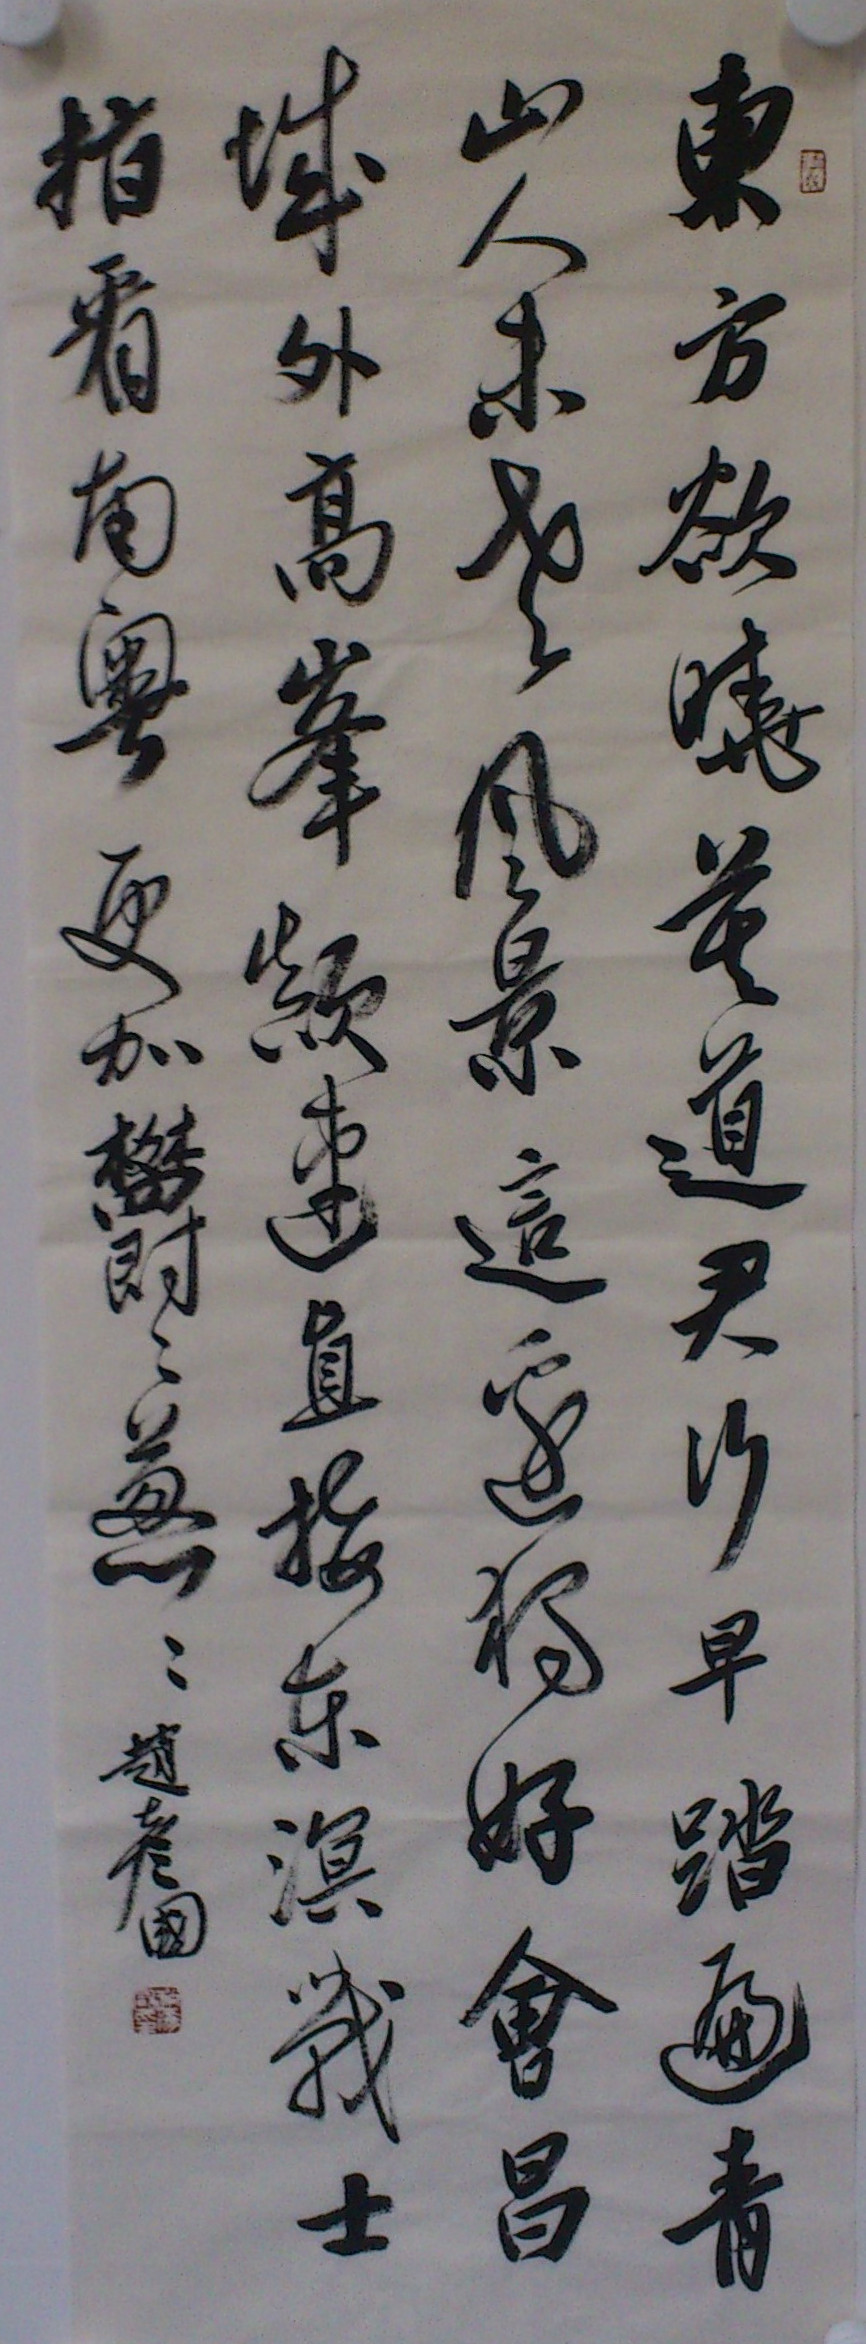 東方欲曉莫道君行早踏遍青
山人未老風景這邊獨好會昌
城外高峯顛連直接东溟戰士
指看南粵更加鬱々蔥々趙彦國